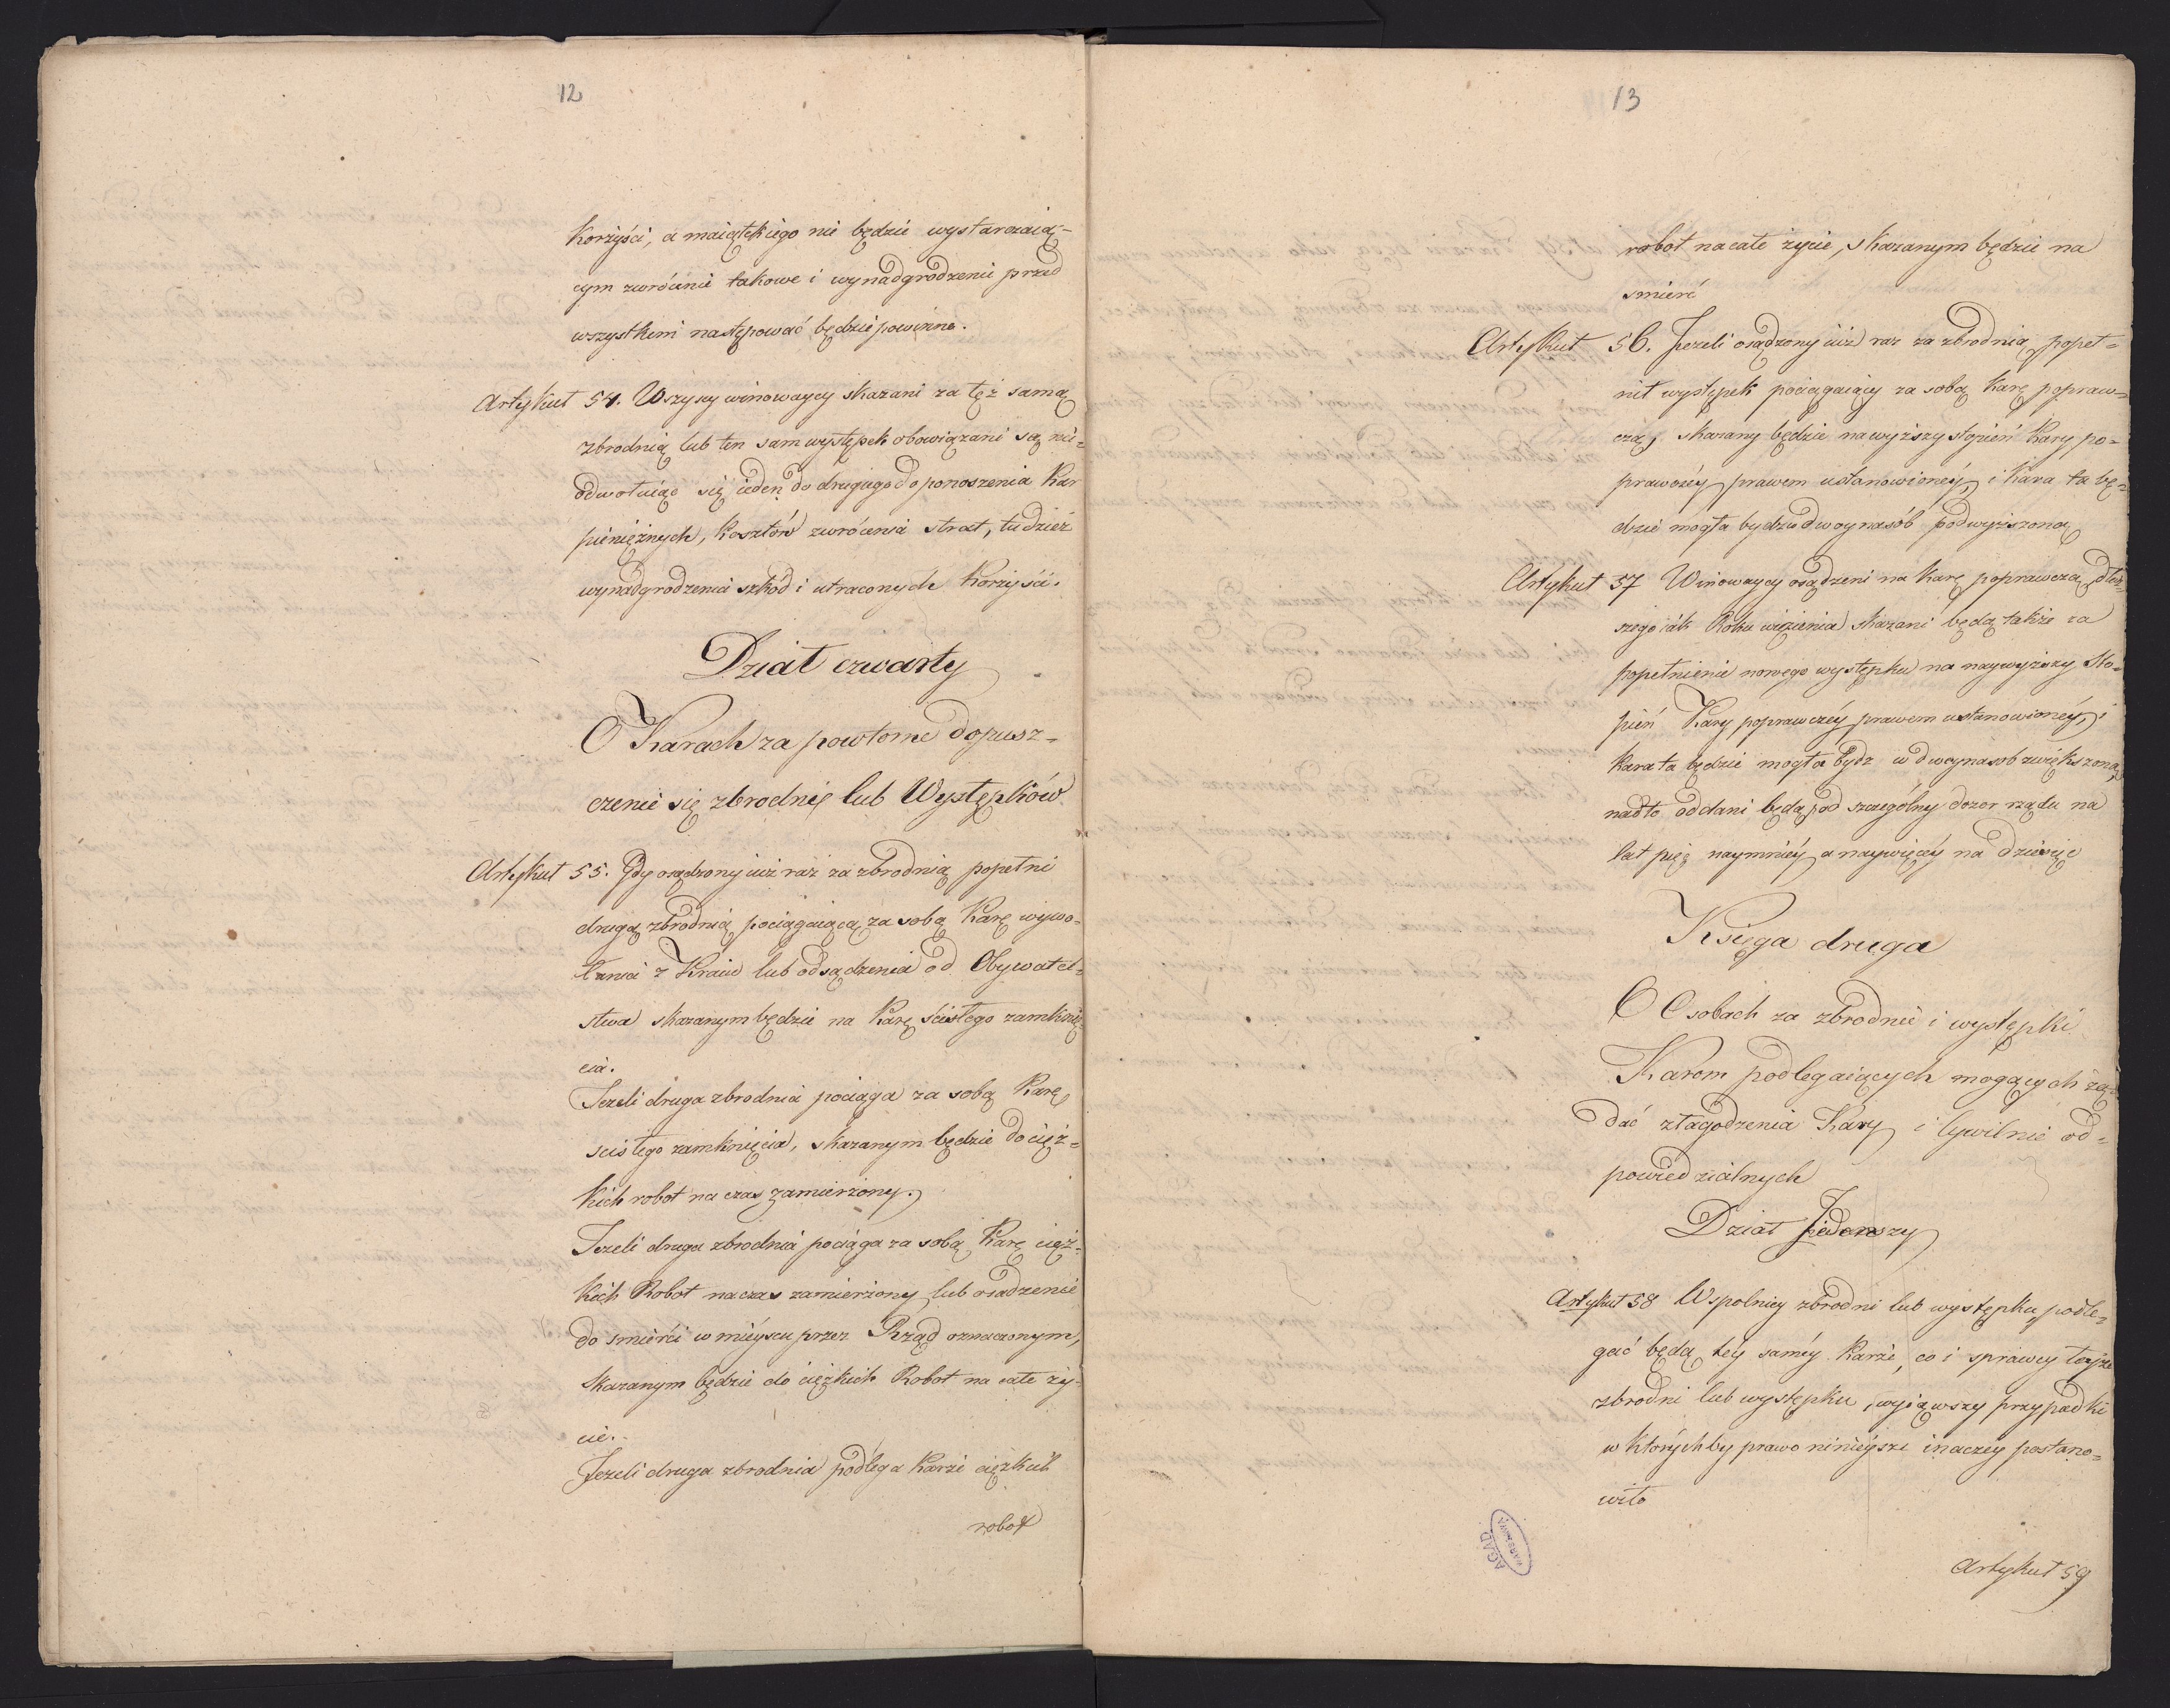 12
korzyści, a maiątek iego nie będzie wystarczaią-
cym zwrócenie takowe i wynadgrodzenie przed
wszystkiem następować będzie powinno.
Artykuł 54. Wszyscy winowaycy skazani za tęż samą
zbrodnią lub ten sam występek obowiązani są nie-
odwołuiąc się ieden do drugiego do ponoszenia kar
pieniężnych, kosztów zwrócenia strat, tudzież
wynadgrodzenia szkód i utraconych korzyści.
Dział czwarty
O Karach za powtorne dopusz-
czenie się zbrodni lub Występków
Artykuł 55. Gdy osądzony iuż raz za zbrodnią popełni
drugą zbrodnią pociągaiącą za sobą karę wywo-
łania z Kraiu lub odsądzenia od Obywatel-
stwa skazanym będzie na karę ścisłego zamknię-
cia.
Jeżeli druga zbrodnia pociąga za sobą karę
scisłego zamknięcia, skazanym będzie do cięż-
kich robot na czas zamierzony.
Jeżeli druga zbrodnia pociąga za sobą karę cięż-
kich Robot na czas zamierzony lub osadzenie
do smierci w mieyscu przez Rząd oznaczonym,
skazanym będzie do ciężkich Robot na całe ży-
cie.
Jeżeli druga zbrodnia podlega karze ciężkich
robot
13
robot na całe życie, skazanym będzie na
smierć
Artykuł 56. Jeżeli osądzony iuż raz za zbrodnią popeł-
nił występek pociągaiący za sobą karę popraw-
czą, skazany będzie na wyższy stopień kary po-
prawczéy prawem ustanowionéy, i kara ta bę-
dzie mogła bydź w dwoynasób podwyższoną
Artykuł 57 Winowaycy osądzeni na karę poprawczą dłuż-
szego iák Roku więzienia skazani będą także za
popełnienie nowego występku na naywyższy sto-
pień Kary poprawczéy prawem ustanowionéy, i
kara ta będzie mogła bydz w dwoynasob zwiększoną
nadto oddani będą pod szczególny dozor rządu na
lat pięć naymniéy a naywięcéy na dziesięc
Księga druga
O Osobach za zbrodnie i występki
Karom podlegaiących mogących żą-
dać złagodzenia Kary i Cywilnie od-
powiedzialnych
Dział Jedenszy
Artykuł 58 Wspolnicy zbrodni lub występku podle-
gać będą téy saméy karze, co i sprawcy teyże
zbrodni lub występku, wyiąwszy przypadki
w którychby prawo ninieysze inaczéy postano-
wiło
AGAD
WARSZAWA
Artykuł 59